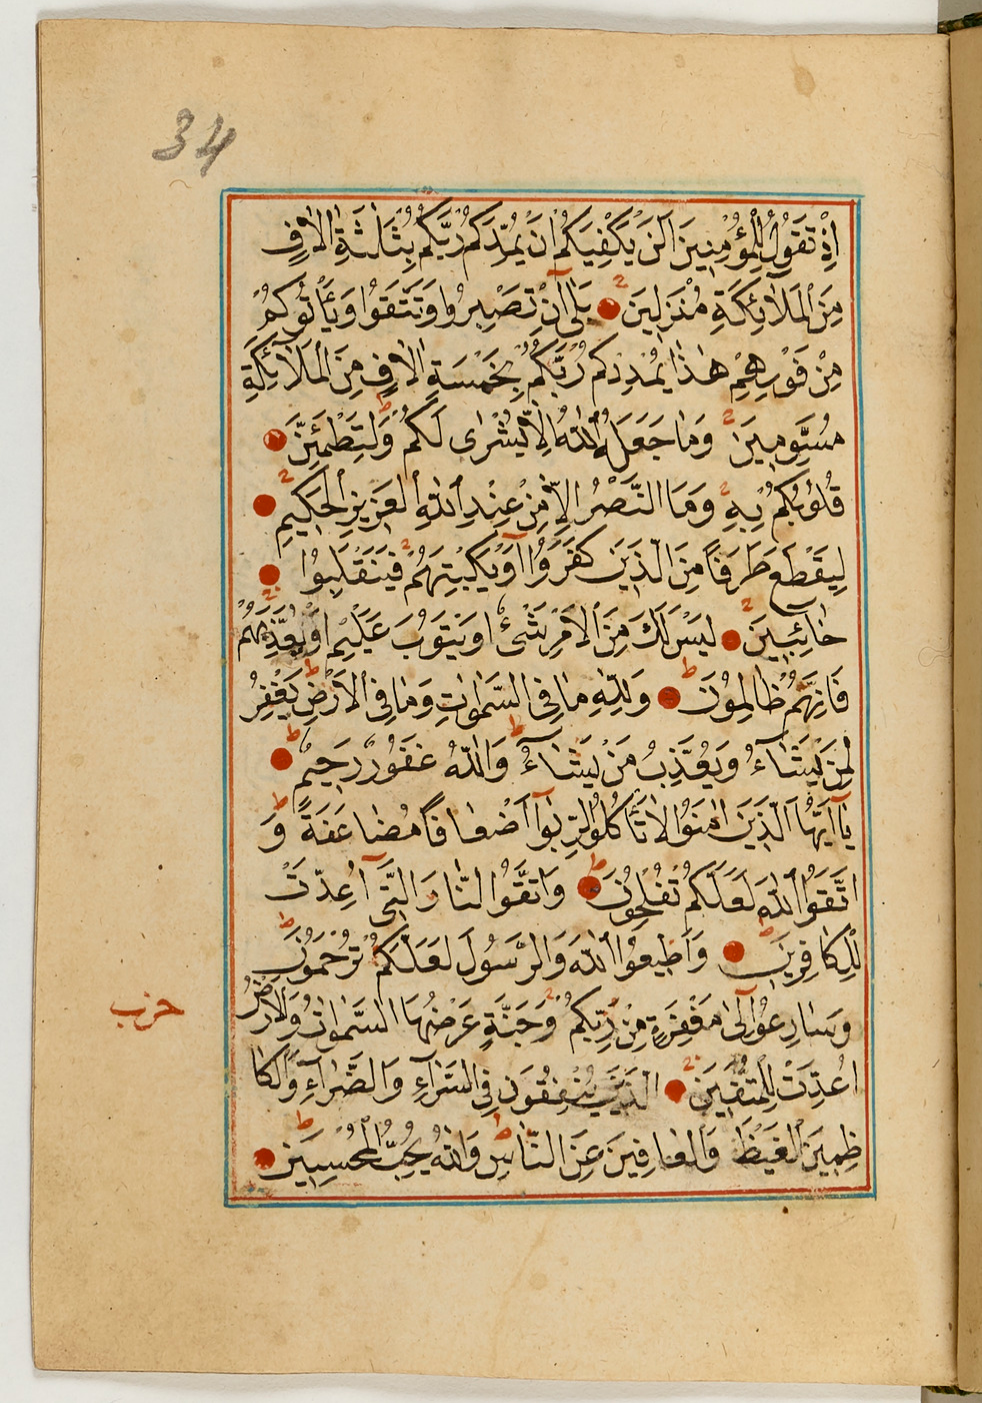 34
اِذْ تَقُولُ لِلْمُؤْمِنِينَ اَلَنْ يَكْفِيَكُمْ اَنْ يُمِدَّكُمْ رَبُّكُمْ بِثَلٰثَةِ اٰلَافٍ
مِنَ الْمَلَآئِكَةِ مُنْزَلِينَ بَلٰٓى اَنْ تَصْبِرُوا وَتَتَّقُوا وَيَأْتُوكُمْ
مِنْ فَوْرِهِمْ هٰذَا يُمْدِدْكُمْ رَبُّكُمْ بِخَمْسَةِ اٰلَافٍ مِنَ الْمَلَآئِكَةِ
مُسَوِّمِينَ وَمَا جَعَلَهُ اللّٰهُ اِلَّا بُشْرٰى لَكُمْ وَلِتَطْمَئِنَّ
قُلُوبُكُمْ بِهِ وَمَا النَّصْرُ اِلَّا مِنْ عِنْدِ اللّٰهِ الْعَزِيزِ الْحَكِيمِ
لِيَقْطَعَ طَرَفًا مِنَ الَّذِينَ كَفَرُوٓا اَوْ يَكْبِتَهُمْ فَيَنْقَلِبُوا
خَآئِبِينَ لَيْسَ لَكَ مِنَ الْاَمْرِ شَىْءٌ اَوْ يَتُوبَ عَلَيْهِمْ اَوْ يُعَذِّبَهُمْ
فَاِنَّهُمْ ظَالِمُونَ وَلِلّٰهِ مَا فِى السَّمٰوَاتِ وَمَا فِى الْاَرْضِ يَغْفِرُ
لِمَنْ يَشَآءُ وَيُعَذِّبُ مَنْ يَشَآءُ وَاللّٰهُ غَفُورٌ رَحِيمٌ
يَآ اَيُّهَا الَّذِينَ اٰمَنُوا لَا تَأْكُلُوا الرِّبٰوٓا اَضْعَافًا مُضَاعَفَةً وَ
اتَّقُوا اللّٰهَ لَعَلَّكُمْ تُفْلِحُونَ وَاتَّقُوا النَّارَ الَّتِىٓ اُعِدَّتْ
لِلْكَافِرِينَ وَاَطِيعُوا اللّٰهَ وَالرَّسُولَ لَعَلَّكُمْ تُرْحَمُونَ
وَسَارِعُوٓا اِلٰى مَغْفِرَةٍ مِنْ رَبِّكُمْ وَجَنَّةٍ عَرْضُهَا السَّمٰوَاتُ وَالْاَرْضُ
حزب
اُعِدَّتْ لِلْمُتَّقِينَ الَّذِينَ يُنْفِقُونَ فِى السَّرَّآءِ وَالضَّرَّآءِ وَالْكَا
ظِمِينَ الْغَيْظَ وَالْعَافِينَ عَنِ النَّاسِ وَاللّٰهُ يُحِبُّ الْمُحْسِنِينَ